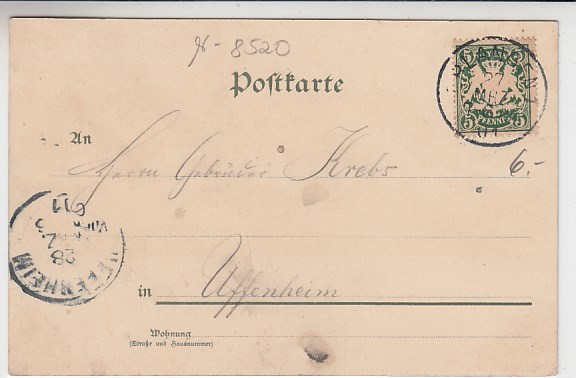 8520
Postkarte
5 5
PFENNIG
27
MRZ
01
An
Herrn Gebrüder Krebs
6.-
UFFENHEIM
28
in Uffenheim
Wohnung
(Straße und Hausnummer)